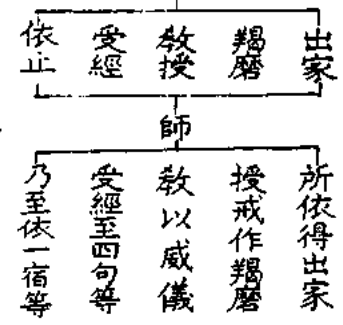 出家
羯磨
教授
受經
依止
師
所依得出家
授戒作羯磨
教以威儀
受經至四句等
乃至依一宿等